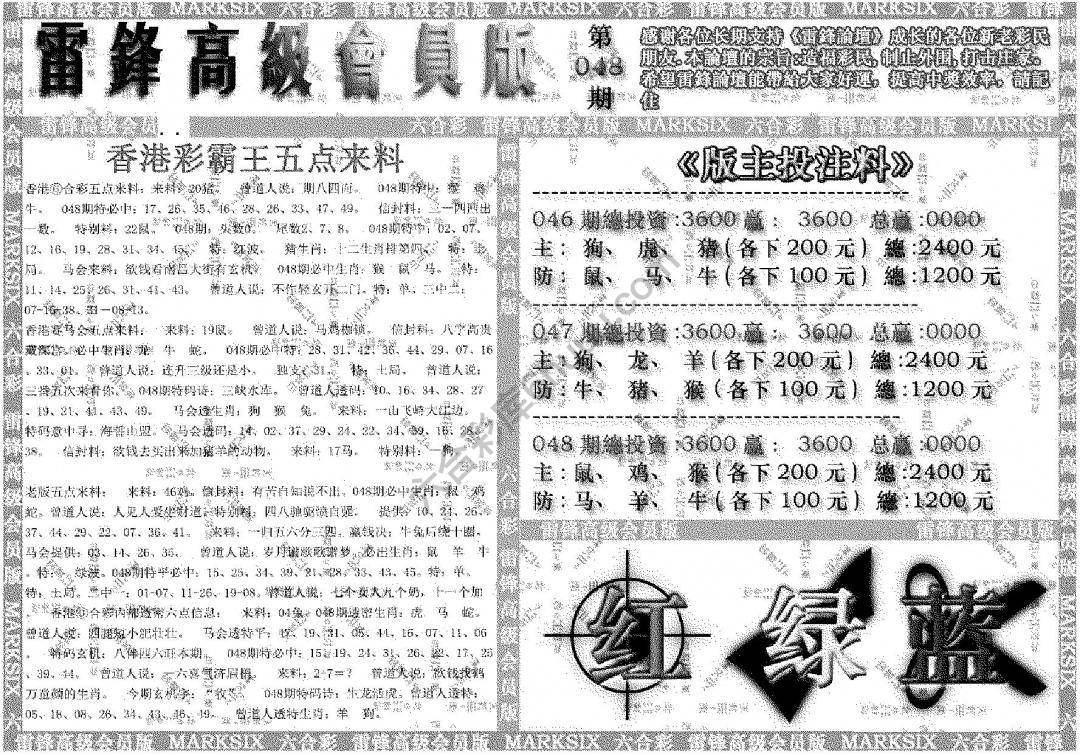 雷锋高级会员版 MARKSIX 六合彩 雷锋高级会员版 MARKSIX 六合彩 雷锋高级会员版 MARKSIX 六合彩
雷鋒高級會員版
第
048
期
感谢各位长期支持《雷鋒論壇》成长的各位新老彩民
朋友.本論壇的宗旨:造福彩民,制止外围,打击庄家.
希望雷鋒論壇能带給大家好運，提高中獎效率，請記
住
雷锋高级会员 六合彩 雷锋高级会员版 MARKSIX 六合彩 雷锋高级会员版 MARKSI
香港彩霸王五点来料
香港⑥合彩五点来料：来料：20猪。 曾道人说：期八四面。 048期特中：
牛。 048期特必中：17、26、35、46、28、26、33、47、49。 信封料：三一四四出
一数。 特别料：22鼠。 048期：头数0。 尾数2、7、8。 048期特中：02、07、
12、16、19、28、31、34、45。 特：红波。 猪生肖：十二生肖排第四。 特：土
局。 马会来料：欲钱看南昌大街有玄机。 048期必中生肖：猴 鼠 马。 特：
11、14、25、26、31、41、43。 曾道人说：不作轻玄开二门。特：单。三中二：
07-16-38、31-08-13。
香港赛马会五点来料： 来料：19鼠。 曾道人说：马鸡枷锁。 信封料：八字高贵
必中生肖：龙 牛 蛇。 048期必中特：28、31、42、36、44、29、07、16
、33、01。 曾道人说：连升三级还是小。 独支：31。 特：土局。 曾道人说：
三番五次来看你。 048期特码诗：三峡水库。 曾道人透码：10、16、34、28、27
、19、21、41、43、49。 马会透生肖：狗 猴 兔。 来料：一山飞峙大江边。
特码意中寻：海誓山盟。 马会透码：14、02、37、29、24、22、34、39、16、28、
38。 信封料：欲钱去买出来如猪羊的动物。 来料：17马。 特别料：
老版五点来料： 来料：46鸡。信封料：有苦自知说不出。048期必中生肖：鼠 鸡
蛇。曾道人说：人见人爱坐财道。特别料：四八驰驱愤自强。 提供：10、21、26、
37、44、29、22、07、36、41。 来料：一归五六分三四。赢钱决：牛兔后绕十圈。
马会提供：03、14、26、35。 曾道人说：岁月谱歌歌谱梦。必出生肖：鼠 羊 牛
。特： 绿波。048期特平必中：15、25、34、39、21、28、33、43、45。特：单。
特：土局。三中一：01-07、11-26、19-08。曾道人说：七个女人九个奶，十一个加
香港⑥合彩内部透密六点信息： 来料：04兔。048期透密生肖：虎 马 蛇。
曾道人说：四腿短小肥壮壮。 马会透特平：17、19、31、05、44、16、07、11、06
。特码玄机：八伴四六旺本期。 048期特必中：15、19、24、31、26、22、17、25
、39、44。 曾道人说：一六喜气济眉梢。 来料：2-7=？ 曾道人说：欲钱找鹤
万童颜的生肖。 今期玄机字： 048期特码诗：生龙活虎。曾道人透特：
05、18、08、26、34、43、46、49。 曾道人透特生肖：羊 狗。
《版主投注料》
046 期總投資:3600 赢: 3600 总赢:0000
主: 狗、 虎、 猪(各下200元) 總:2400 元
防: 鼠、 马、 牛(各下100元) 總:1200 元
047 期總投資:3600 赢: 3600 总赢:0000
主: 狗、 龙、 羊(各下200元) 總:2400 元
防: 牛、 猪、 猴(各下100元) 總:1200 元
048 期總投資:3600 赢: 3600 总赢:0000
主: 鼠、 鸡、 猴(各下200元) 總:2400 元
防: 马、 羊、 牛(各下100元) 總:1200 元
雷锋高级会员版 雷锋高级会员版
红 绿 蓝
雷锋高级会员版 MARKSIX 六合彩 雷锋高级会员版 MARKSIX 六合彩 雷锋高级会员版 MARKSIX 六合彩